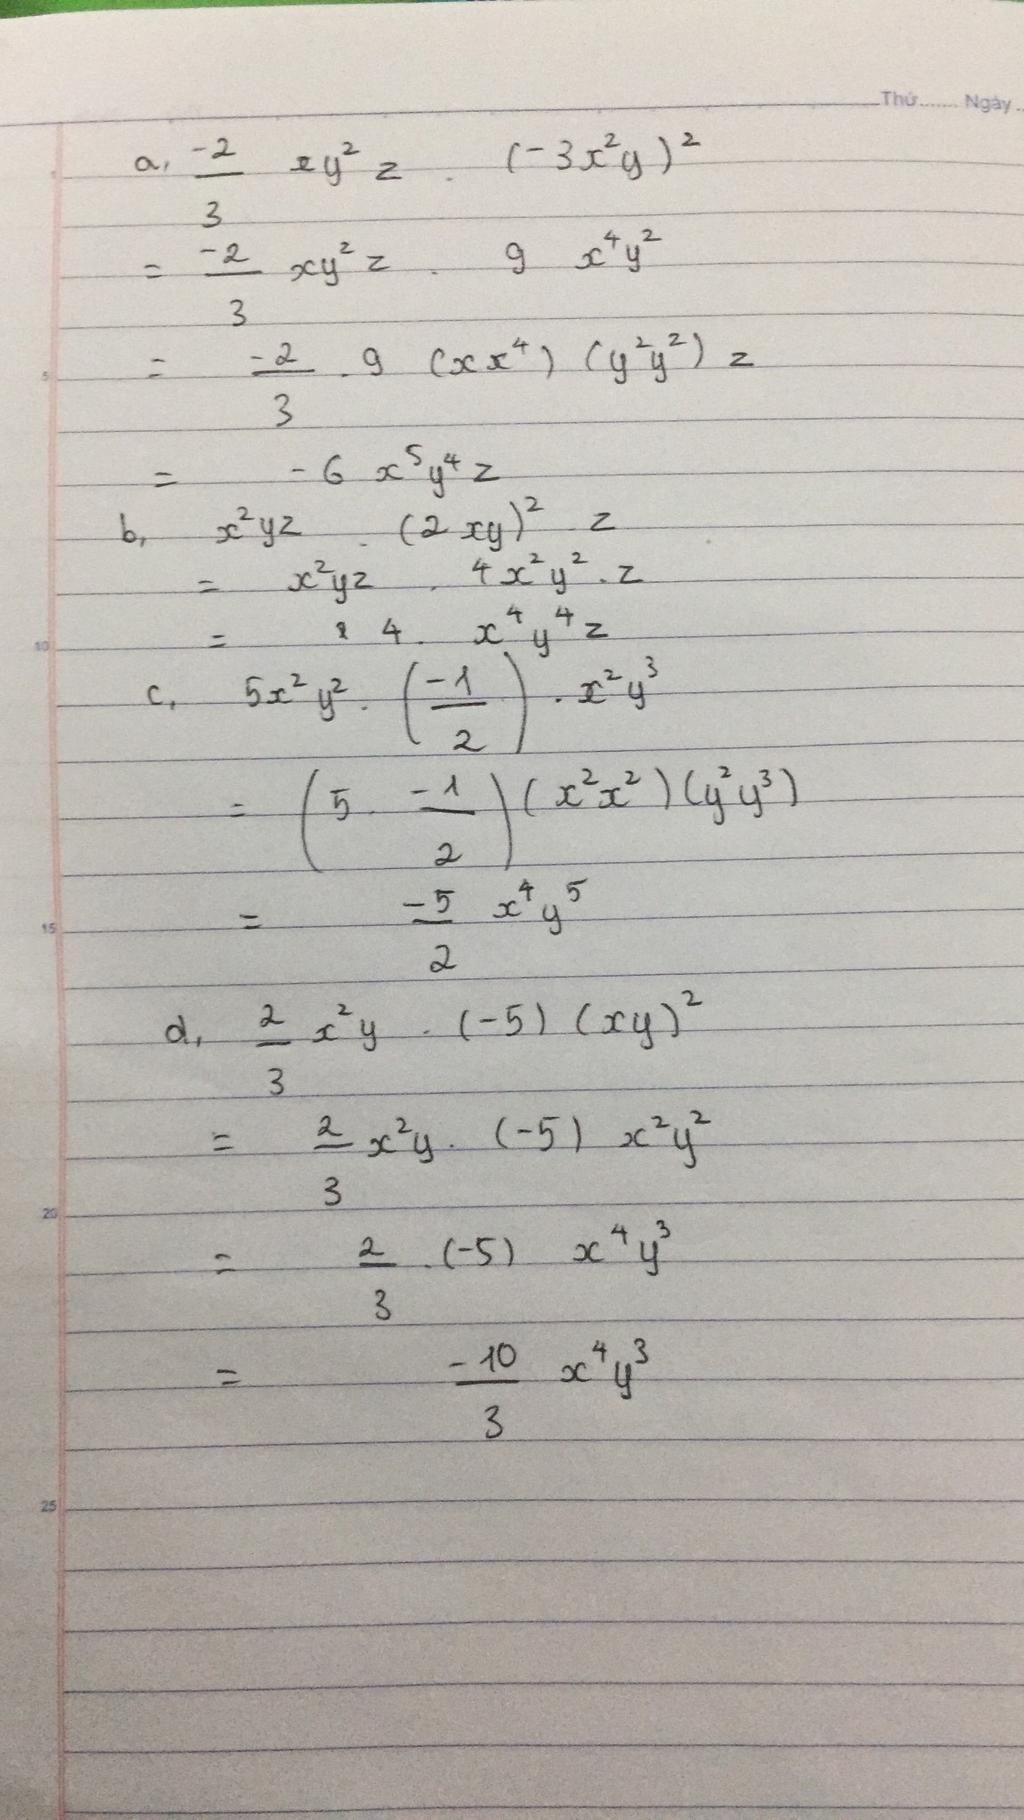 Thứ....... Ngày..
a, -2/3 xy²z . (-3x²y)²
= -2/3 xy²z . 9 x⁴y²
5
= -2/3 . 9 (xx⁴) (y²y²) z
= -6 x⁵y⁴z
b, x²yz . (2xy)² . z
= x²yz . 4x²y² . z
10
= 4 . x⁴y⁴z
c, 5x²y² . (-1/2) . x²y³
= (5 . -1/2) (x²x²) (y²y³)
15
= -5/2 x⁴y⁵
d, 2/3 x²y . (-5) (xy)²
= 2/3 x²y . (-5) x²y²
20
= 2/3 . (-5) x⁴y³
= -10/3 x⁴y³
25